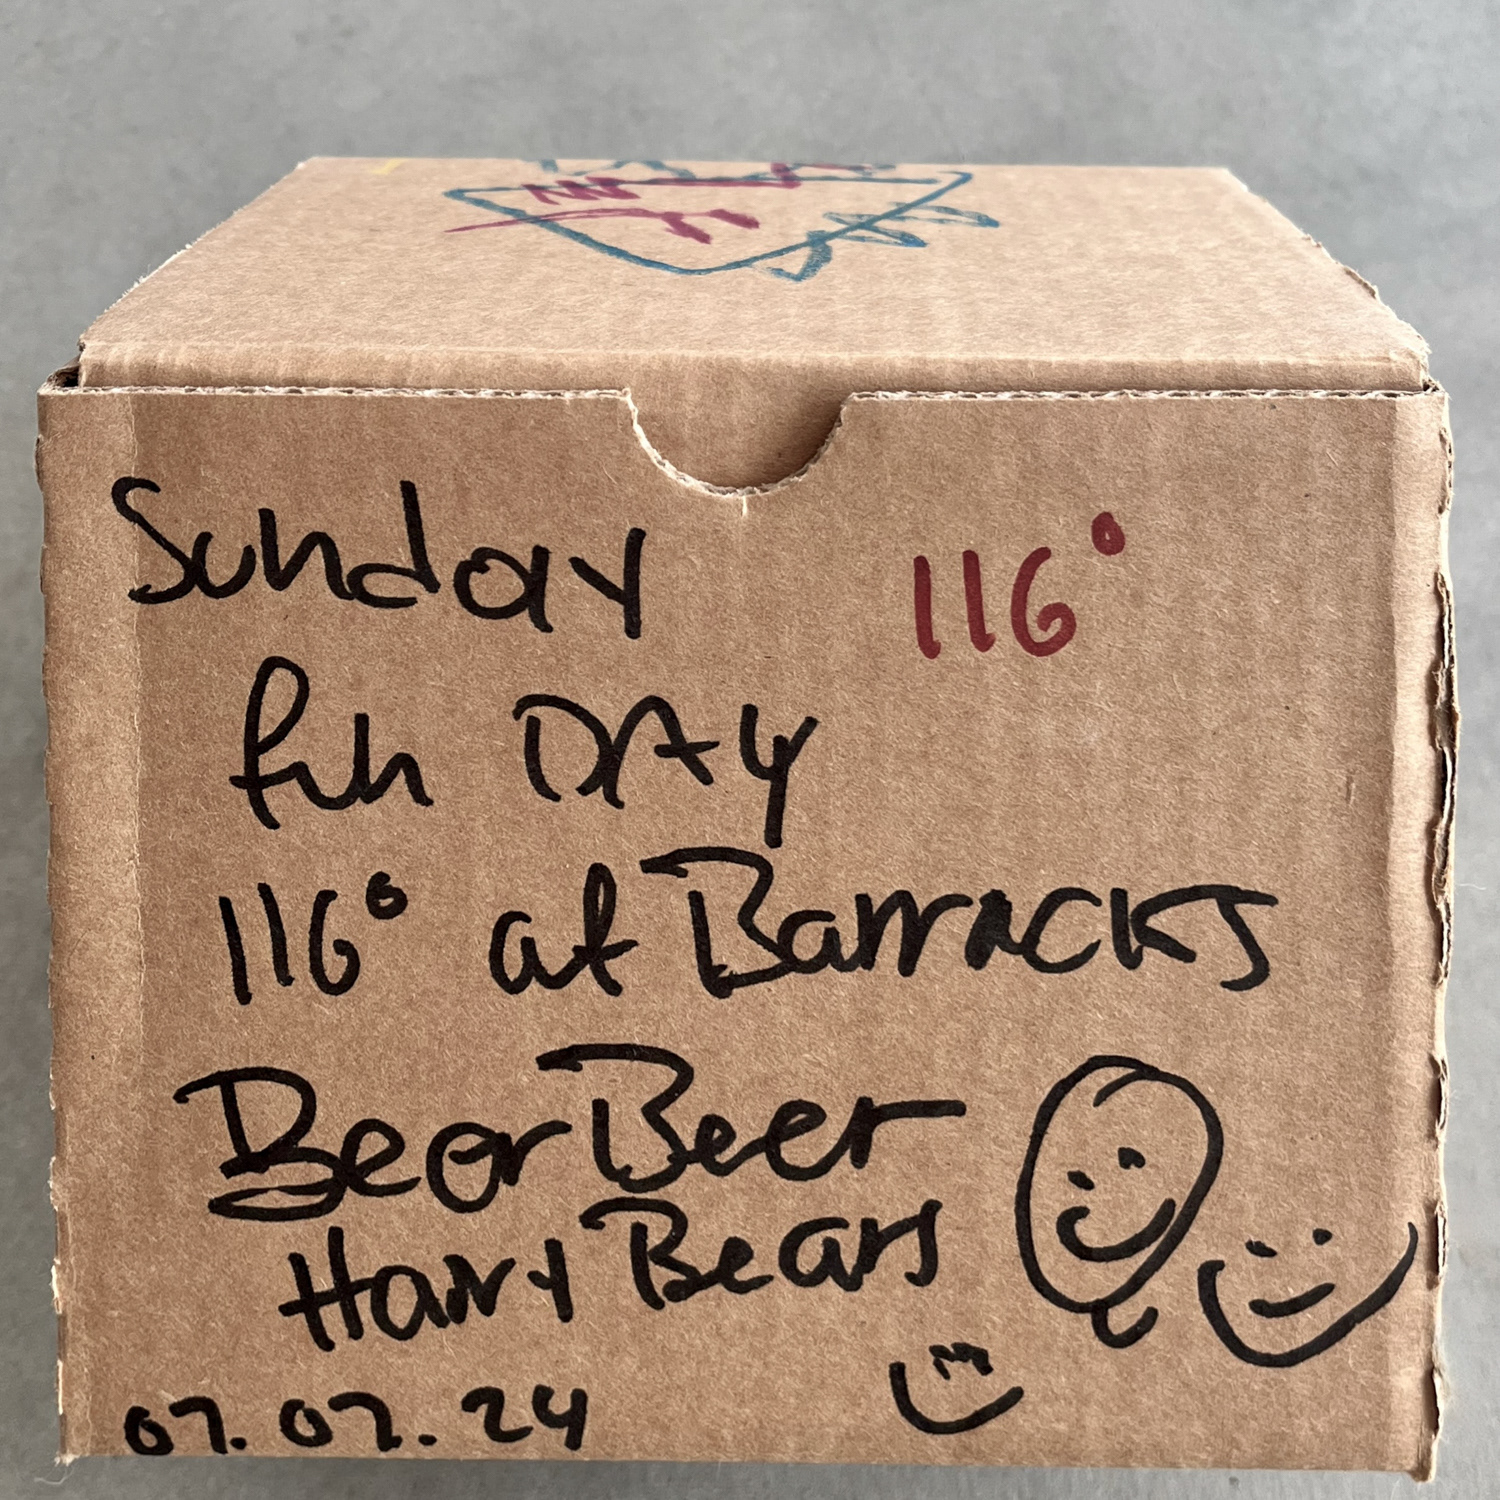 Sunday
116°
fun DAY
116° at BarrACKS
Bear Beer
Hairy Bears
07.07.24